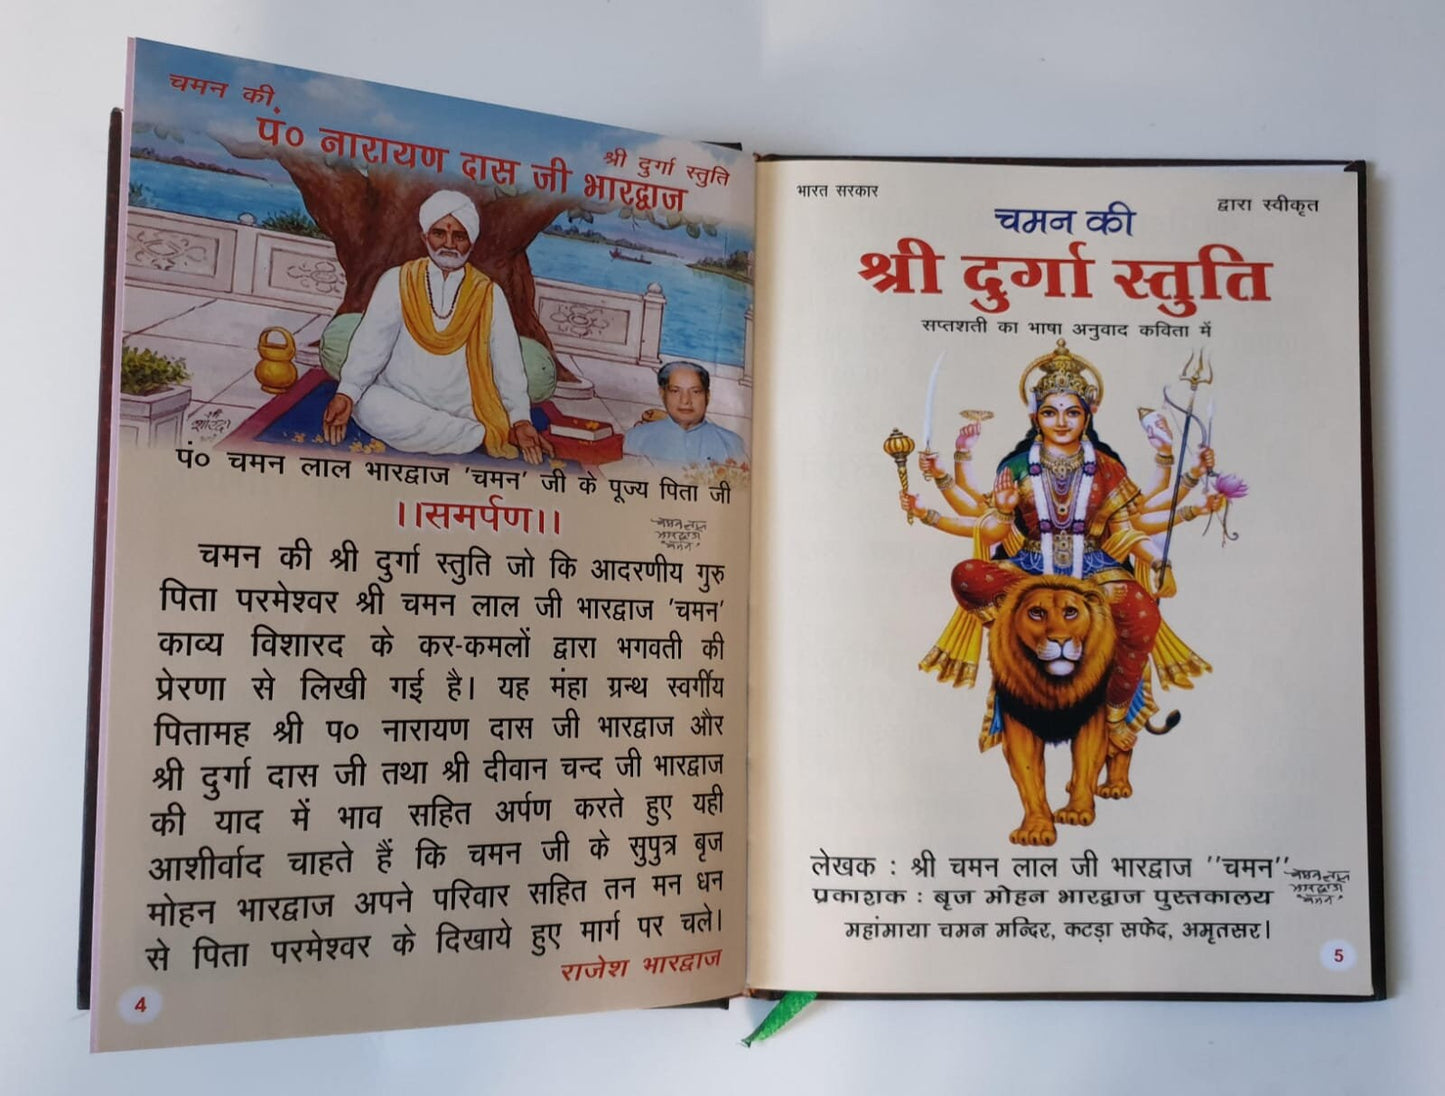 चमन की
श्री दुर्गा स्तुति
पं० नारायण दास जी भारद्वाज
पं० चमन लाल भारद्वाज 'चमन' जी के पूज्य पिता जी
।।समर्पण।।
चमन लाल
भारद्वाज
'चमन'
चमन की श्री दुर्गा स्तुति जो कि आदरणीय गुरु
पिता परमेश्वर श्री चमन लाल जी भारद्वाज 'चमन'
काव्य विशारद के कर-कमलों द्वारा भगवती की
प्रेरणा से लिखी गई है। यह मंहा ग्रन्थ स्वर्गीय
पितामह श्री प० नारायण दास जी भारद्वाज और
श्री दुर्गा दास जी तथा श्री दीवान चन्द जी भारद्वाज
की याद में भाव सहित अर्पण करते हुए यही
आशीर्वाद चाहते हैं कि चमन जी के सुपुत्र बृज
मोहन भारद्वाज अपने परिवार सहित तन मन धन
से पिता परमेश्वर के दिखाये हुए मार्ग पर चले।
राजेश भारद्वाज
4
भारत सरकार
द्वारा स्वीकृत
चमन की
श्री दुर्गा स्तुति
सप्तशती का भाषा अनुवाद कविता में
लेखक : श्री चमन लाल जी भारद्वाज ''चमन''
चमन लाल
भारद्वाज
'चमन'
प्रकाशक : बृज मोहन भारद्वाज पुस्तकालय
महांमाया चमन मन्दिर, कटड़ा सफेद, अमृतसर।
5